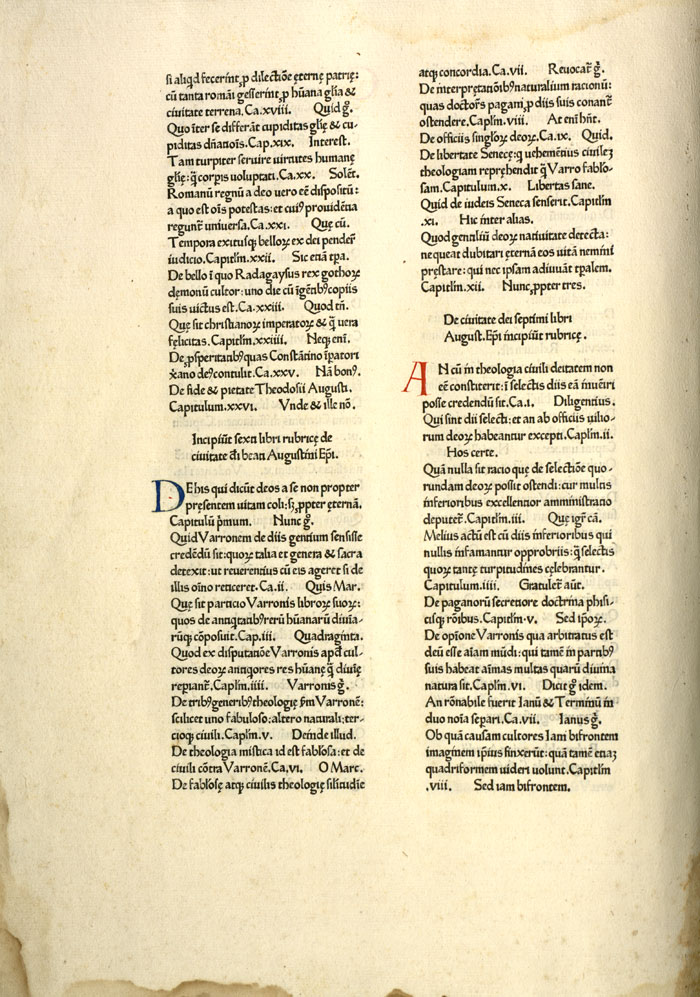 si aliqd fecerint, ꝓ dilectiōe ęternę patrię:
cū tanta romāi gesserint, ꝓ hūana glīa &
ciuitate terrena. Ca.xviii. Quid g̊.
Quo īter se differāt cupiditas glīę & cu-
piditas dn̄atiois. Cap.xix. Interest.
Tam turpiter seruire uirtutes humanę
glīę: q̄ corpis uoluptati. Ca.xx. Solēt.
Romanū regnū a deo uero eē dispositū:
a quo est oīs potestas: et cuiꝰ prouidētia
regunt̄ universa. Ca.xxi. Que cū.
Tempora exitusqꝫ belloꝝ ex dei pender̄
iudicio. Capitlm̄.xxii. Sic etiā tꝑa.
De bello ī quo Radagaysus rex gothoꝝ
dęmonū cultor: uno die cū īgētibꝰ copiis
suis uictus est. Ca.xxiii. Quod tn̄.
Que sit christianoꝝ imperatoꝝ & q̄ uera
fęlicitas. Capitlm̄.xxiiii. Neqꝫ enī.
De ꝓsperitatibꝰ quas Constātino īpatori
xāno deꝰ contulit. Ca.xxv. Nā bonꝰ.
De fide & pietate Theodosii Augusti.
Capitulum.xxvi. Vnde & ille nō.
Incipiūt sexti libri rubricę de
ciuitate dī beati Augustini Ep̄i.
DE his qui dicūt deos a se non propter
pręsentem uitam coli: sꝫ ꝓpter ęternā.
Capitulū p̄mum. Nunc g̊.
Quid Varronem de diis gentium sensisse
credēdū sit: quoꝝ talia et genera & sacra
detexit: ut reuerentius cū eis ageret si de
illis oīno reticeret. Ca.ii. Quis Mar.
Quę sit partitio Varronis libroꝝ suoꝝ:
quos de antiq̄tatibꝰ rerū hūanarū diuīa-
rūqꝫ cōposuit. Cap.iii. Quadraginta.
Quod ex disputatiōe Varronis apd̄ cul-
tores deoꝝ antiqores res hūanę q̄ diuīę
repiant̄. Caplm̄.iiii. Varronis g̊.
De tribꝰ generibꝰ theologię ẜm Varronē:
scilicet uno fabuloso: altero naturali: ter-
cioqꝫ ciuili. Caplm̄.v. Deinde illud.
De theologia mistica id est fabl̄osa: et de
ciuili cōtra Varronē. Ca.vi. O Marc.
De fabl̄osę atqꝫ ciuilis theologię silitudīe
atqꝫ concordia. Ca.vii. Reuocat̄ g̊.
De interpretatōibꝰ naturalium racionū:
quas doctor̄s pagani, ꝓ diis suis conant̄
ostendere. Caplm̄.viii. At enī hn̄t.
De officiis singl̄oꝝ deoꝝ. Ca.ix. Quid.
De libertate Senecę: q uehemētius ciuilēꝫ
theologiam repręhendit q̄ Varro fabl̄o-
sam. Capitulum.x. Libertas sane.
Quid de iudeis Seneca senserit. Capitlm̄
.xi. Hic inter alias.
Quod gentiliū deoꝝ natiuitate detecta:
nequeat dubitari ęternā eos uitā nemini
pręstare: qui nec ipsam adiuuāt tꝑalem.
Capitlm̄.xii. Nunc, ꝓpter tres.
De ciuitate dei septimi libri
August. Ep̄i incipiūt rubricę.
AN cū in theologia ciuili deitatem non
eē constiterit: ī selectis diis eā īueīri
posse credendū sit. Ca.i. Diligentius.
Qui sint dii selecti: et an ab officiis uilio-
rum deoꝝ habeantur excepti. Caplm̄.ii.
Hos certe.
Quā nulla sit racio quę de selectiōe quo-
rundam deoꝝ possit ostendi: cur multis
inferioribus excellentior amministratio
deputet̄. Capitlm̄.iii. Que igr̄ cā.
Melius actū est cū diis inferioribus qui
nullis infamantur opprobriis: q̄ selectis
quoꝝ tantę turpitudines cęlebrantur.
Capitulum.iiii. Gratulet̄ aūt.
De paganorū secretiore doctrina phisi-
cisqꝫ rōibus. Capitlm̄.v. Sed ip̄oꝝ.
De opīone Varronis qua arbitratus est
deū esse aīam mūdi: qui tamē in partibꝰ
suis habeat aīmas multas quarū diuina
natura sit. Caplm̄.vi. Dicit g̊ idem.
An rōnabile fuerit Ianū & Terminū in
duo noīa separi. Ca.vii. Ianus g̊.
Ob quā causam cultores Iam bifrontem
imaginem ip̄ius finxerūt: quā tamē etiaꝫ
quadriformem uideri uolunt. Capitlm̄
.viii. Sed iam bifrontem.